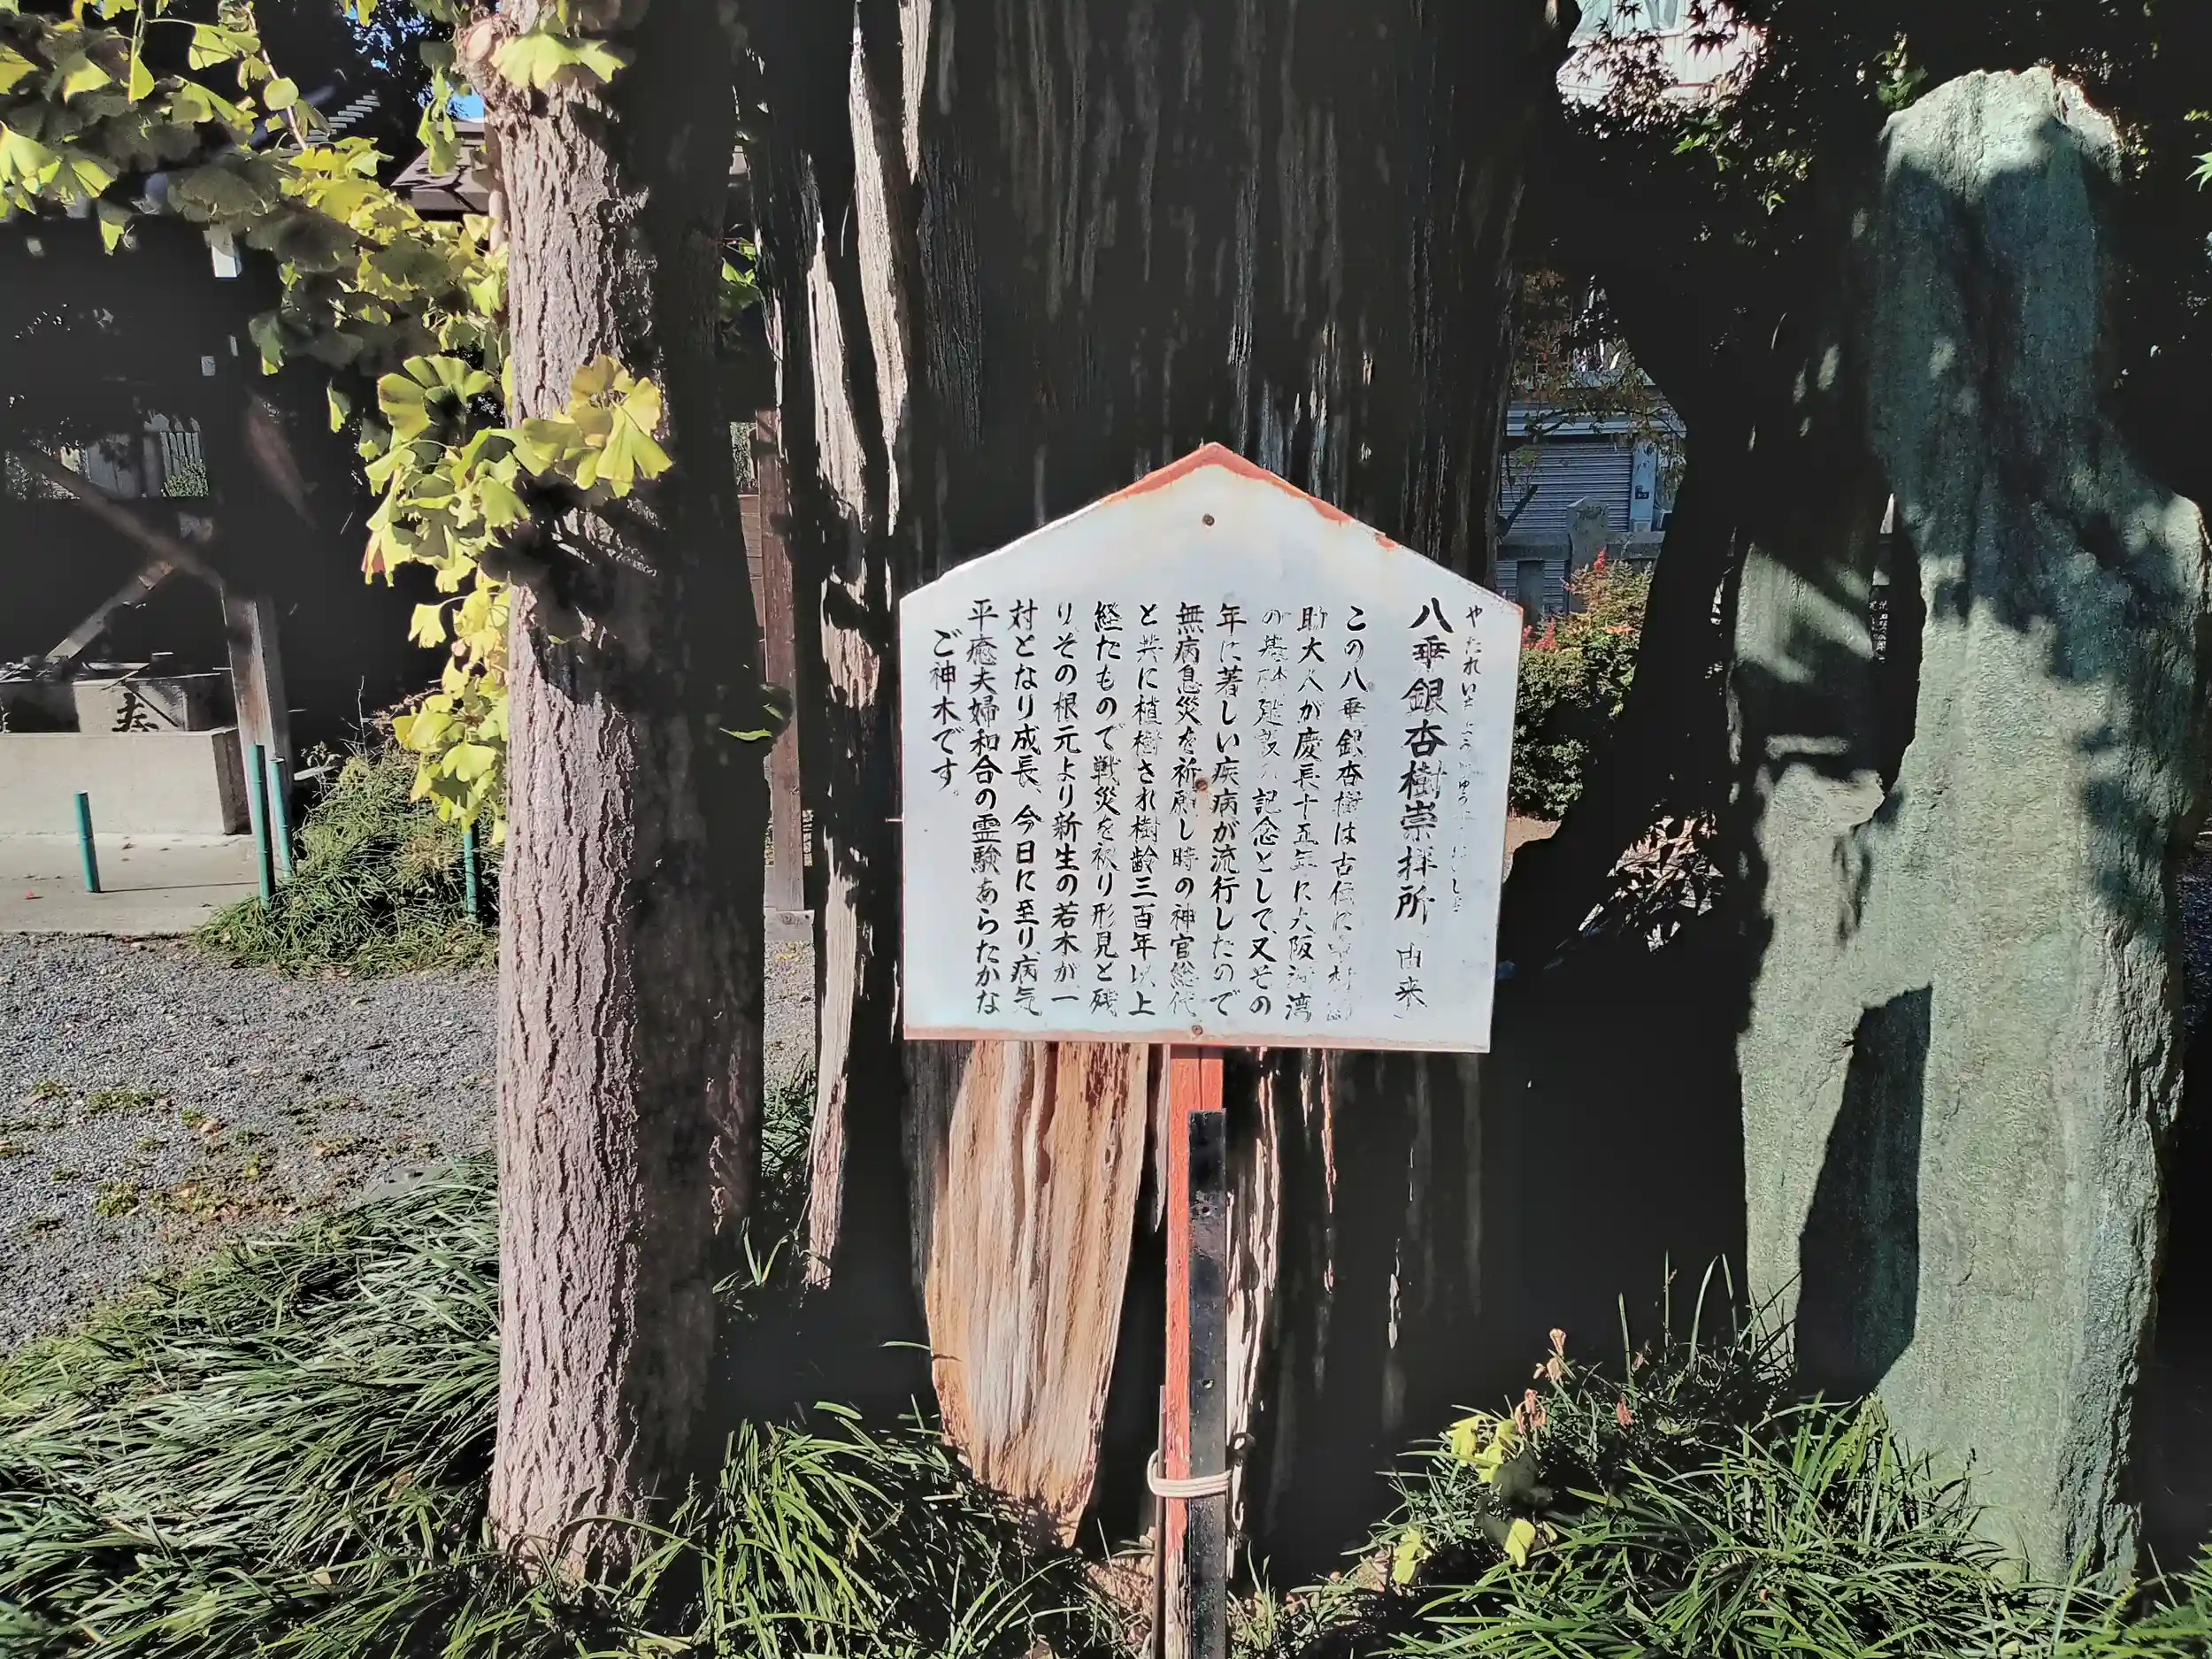 八垂銀杏樹崇拝所(由来)
この八垂銀杏樹は古伝に
助大人が慶長十五年に大阪湾
の基礎建設の記念として、又その
年に著しい疾病が流行したので
無病息災を祈願し時の神官総代
と共に植樹され樹齢三百年以上
経たもので戦災を被り形見と残
り、その根元より新生の若木が一
対となり成長、今日に至り病気
平癒夫婦和合の霊験あらたかな
ご神木です。
奉